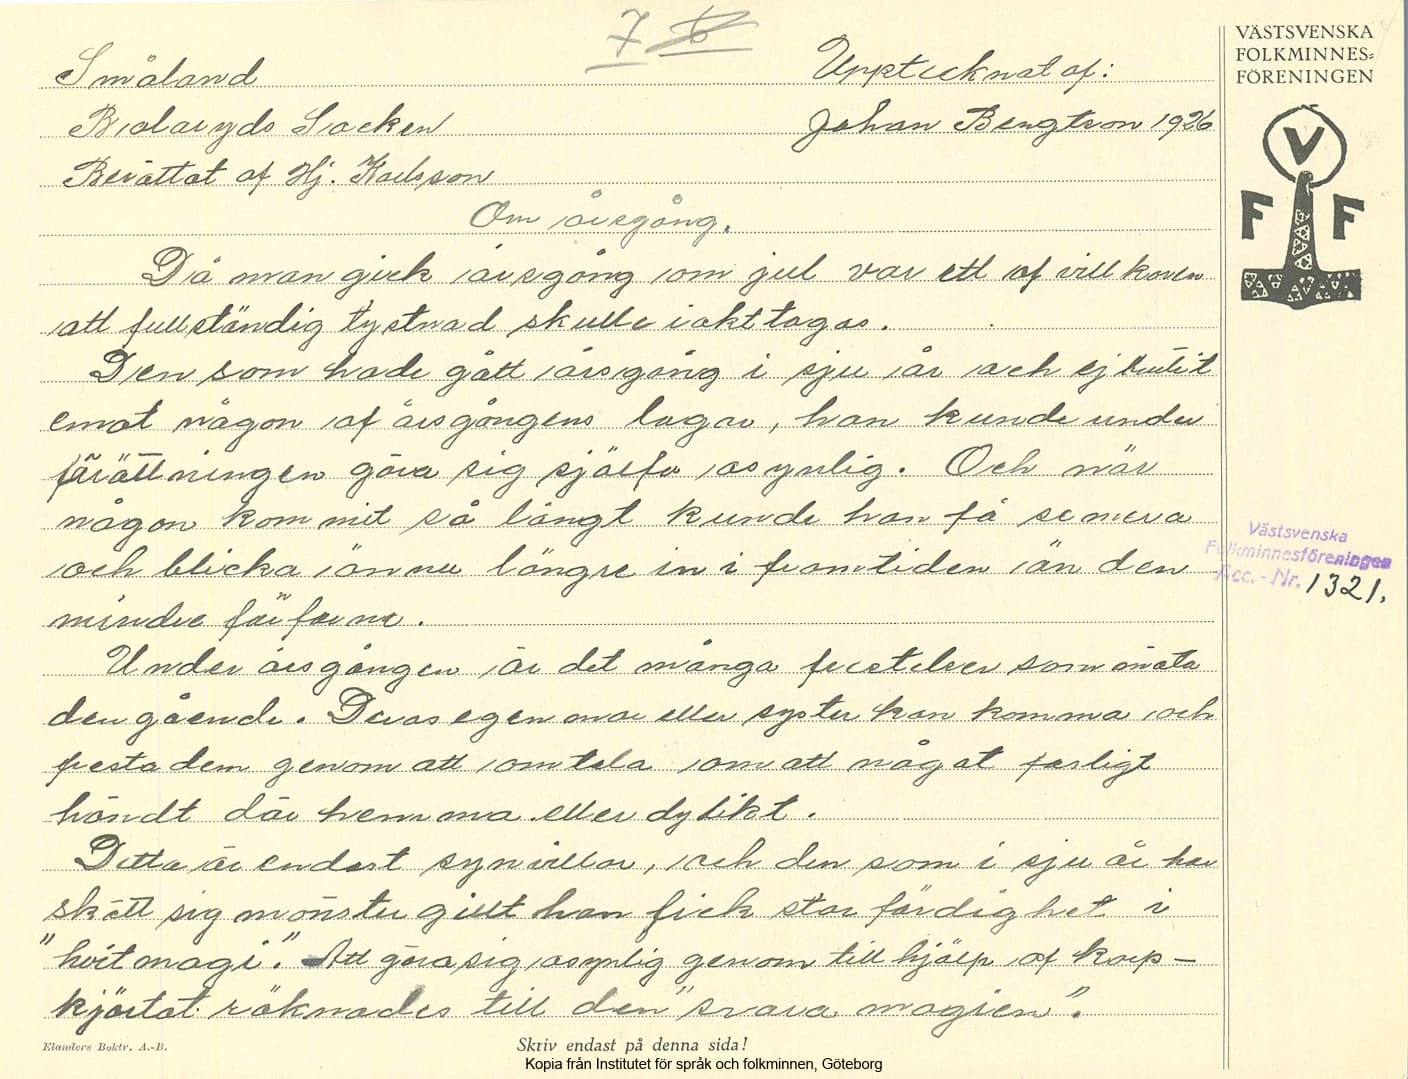 7
VÄSTSVENSKA
FOLKMINNES=
FÖRENINGEN
V
F F
Småland
Upptecknat af:
Bralaryds Socken
Johan Bengtson 1926
Berättat af Hj. Karlsson
Om årsgång.
Då man gick årsgång om jul var ett af villkoren
att fullständig tystnad skulle iakttagas.
Den som hade gått årsgång i sju år och ej brutit
emot någon af årsgångens lagar, han kunde under
förättningen göra sig själfv osynlig. Och när
någon kommit så långt kunde han få se mera
och blicka ännu längre in i framtiden än den
mindre förfarne.
Under årsgången är det många frestelser som möta
den gående. Deras egen mor eller syster kan komma och
fresta dem genom att omtala om att något farligt
händt där hemma eller dylikt.
Detta är endast synvillor, och den som i sju år har
skött sig mönstergillt han fick stor färdighet i
"hvit magi". Att göra sig osynlig genom till hjälp af korp-
hjärtat räknades till den "svara magien".
Västsvenska
Folkminnesföreningen
Acc. - Nr. 1321.
Elanders Boktr. A.-B.
Skriv endast på denna sida!
Kopia från Institutet för språk och folkminnen, Göteborg